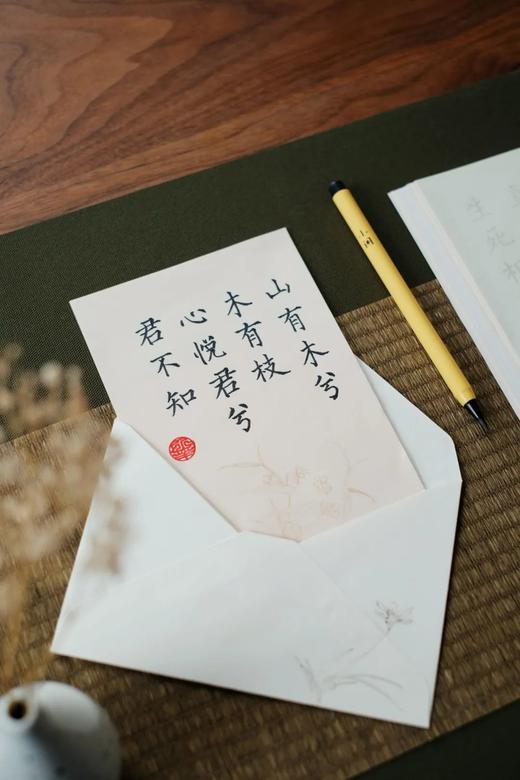 山有木兮
木有枝
心悦君兮
君不知
生死相